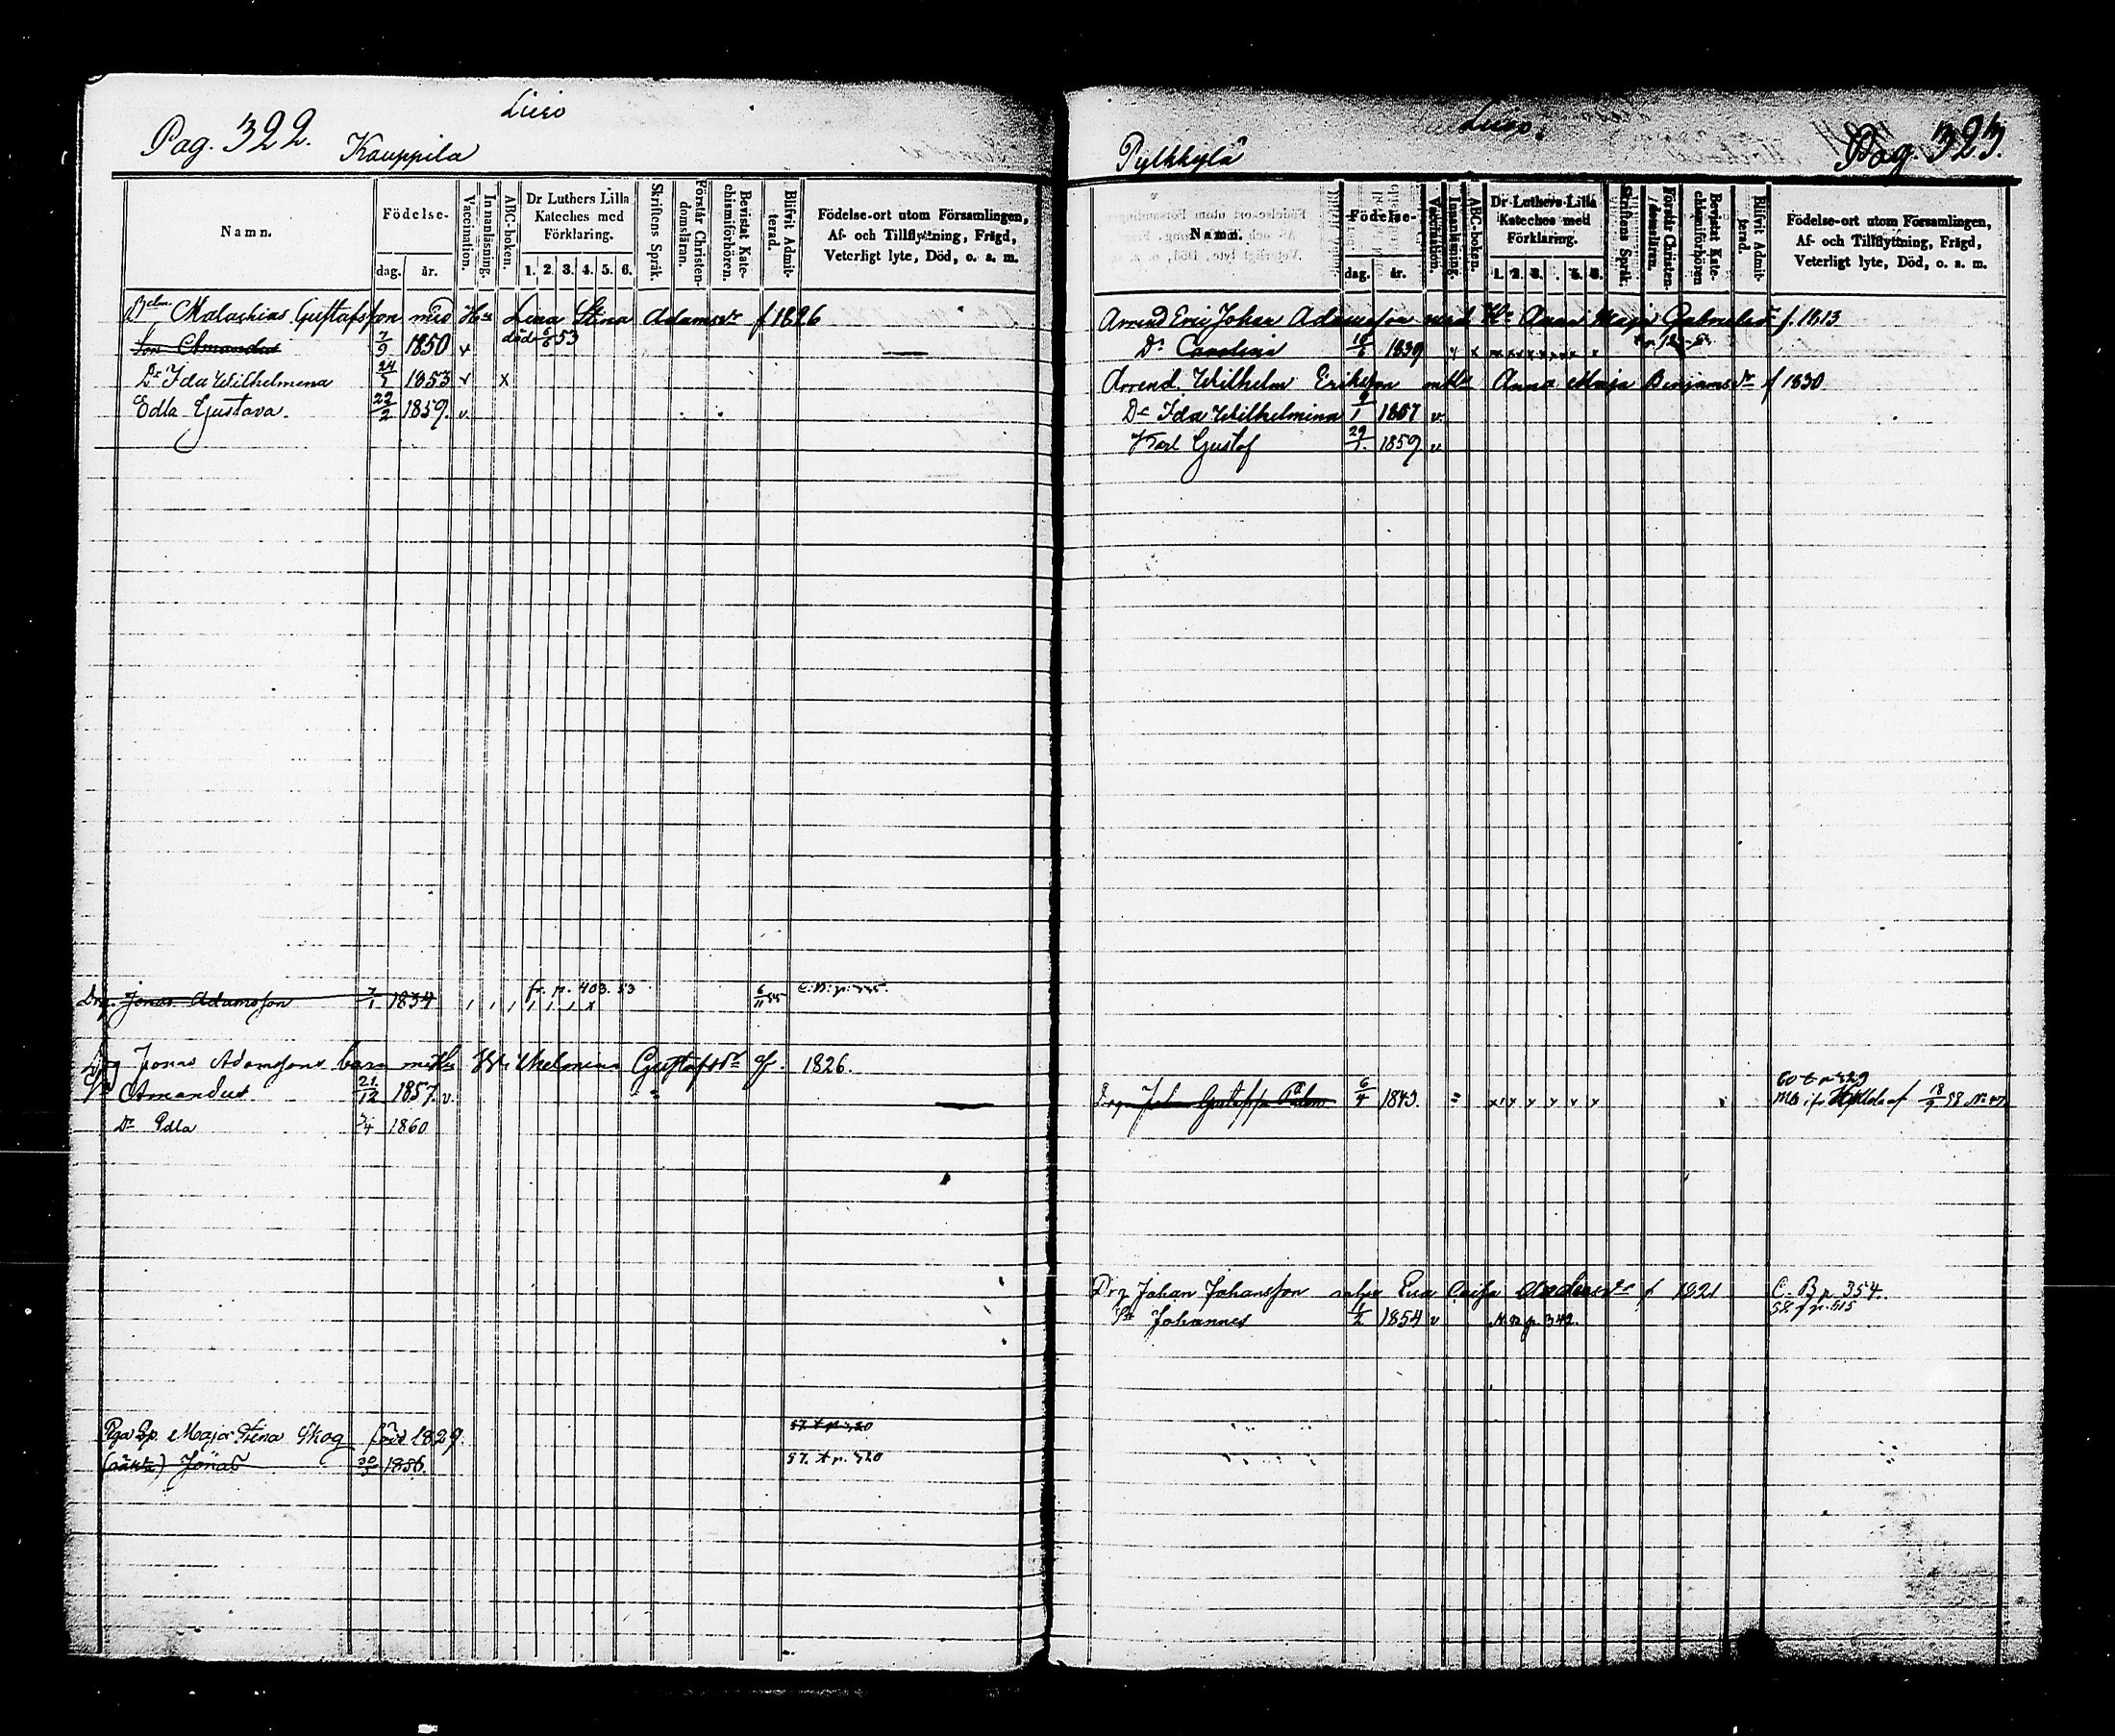 Pag. 322.
Kauppila
Namn.
Födelse-
dag. år.
Vaccination.
Innanläsning.
ABC-boken.
Dr Luthers Lilla Kateches med Förklaring.
1. 2. 3. 4. 5. 6.
Skriftens Språk.
Förstår Christendomsläran.
Bevistat Katechismiförhören.
Blifvit Admitterad.
Födelse-ort utom Församlingen, Af- och Tillflyttning, Frägd, Veterligt lyte, Död, o. a. m.
Malachias Gustafsson med Hu Lena Stina Adamsdr f 1826
Son Amandus 7/9 1850 v död 53
Dr Ida Wilhelmina 24/5 1853 v x
Edla Gustava. 22/2 1859. v.
Drg. Jonas Adamsson 7/1 1834 fr. p. 403. 53 6/11 55
Drg Jonas Adamssons barn m Hu Wilhelmina Gustafsdr f. 1826.
Amandus 21/12 1857. v.
Dr Edla /4 1860
Maja Stena Skog född 1829.
Jonas 1856. 57. t p. 520
Pag. 323.
Pylkkylä
Namn.
Födelse-
dag. år.
Vaccination.
Innanläsning.
ABC-boken.
Dr Luthers Lilla Kateches med Förklaring.
Skriftens Språk.
Förstår Christendomsläran.
Bevistat Katechismiförhören
Blifvit Admitterad.
Födelse-ort utom Församlingen, Af- och Tillflyttning, Frägd, Veterligt lyte, Död, o. a. m.
Arrend Eric Johan Adamsson med Hu Anna Maja Gabrielsdr f. 1813
Dr Carolina 1839
Arrend. Wilhelm Eriksson m Hu Anna Maja Benjamsdr f 1830
Dr Ida Wilhelmina 1857 v.
Karl Gustof 29/1. 1859 v.
Drg Johan 6/4 1843.
Drg Johan Johansson Caisa Andersdr f 1821 C. B p. 354.
Sn Johannes 1/2 1854 v p. 342.